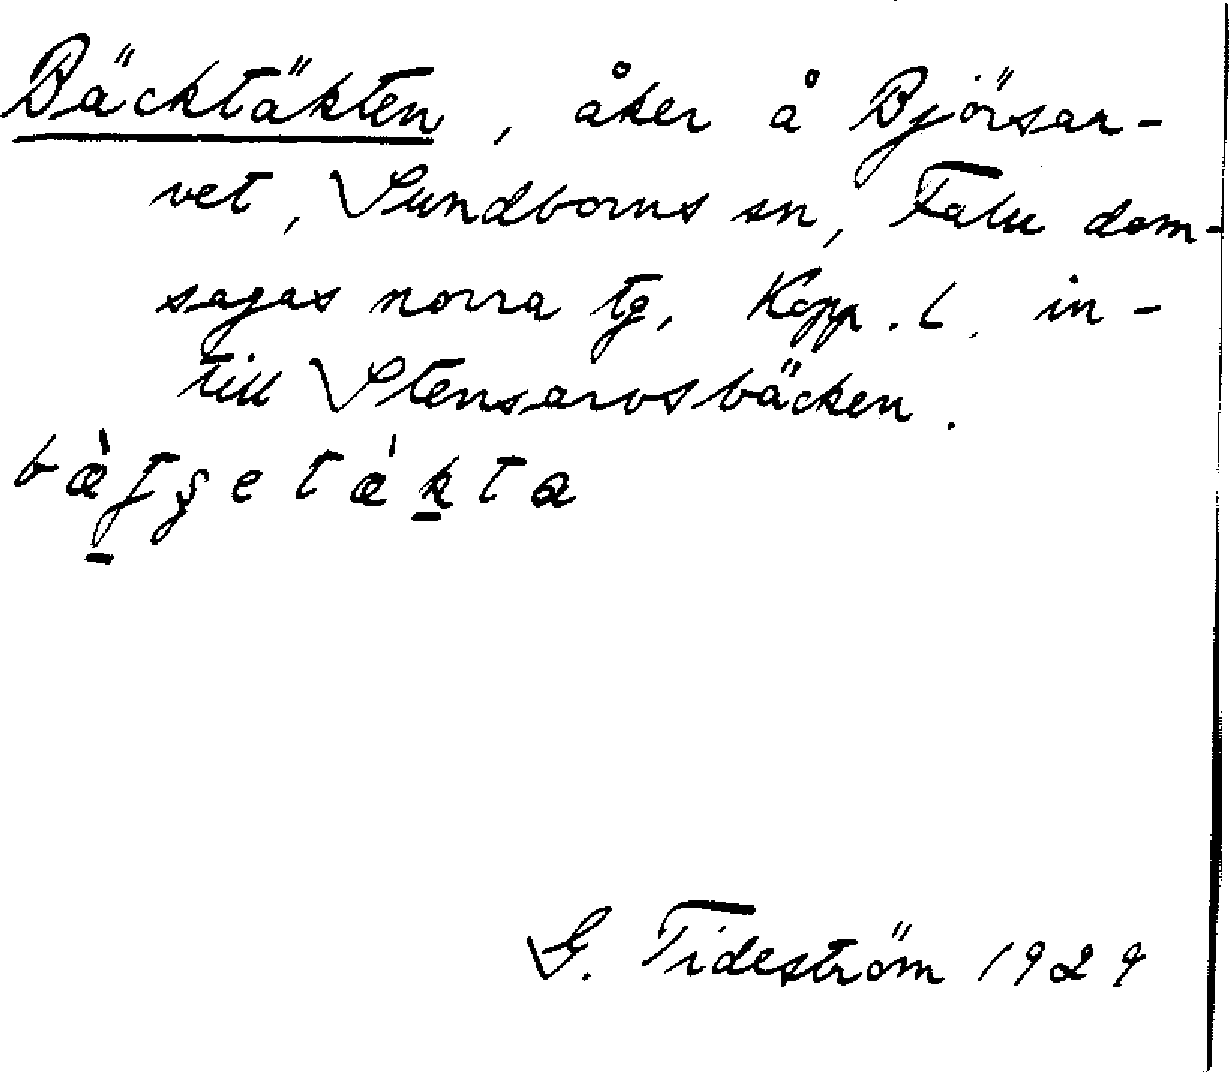 Bäcktäkten, åker å Björsar-
vet, Sundborns sn, Falu dom-
sagas norra tg, Kopp. l. in-
till Stensarvsbäcken.
G. Tideström 1929